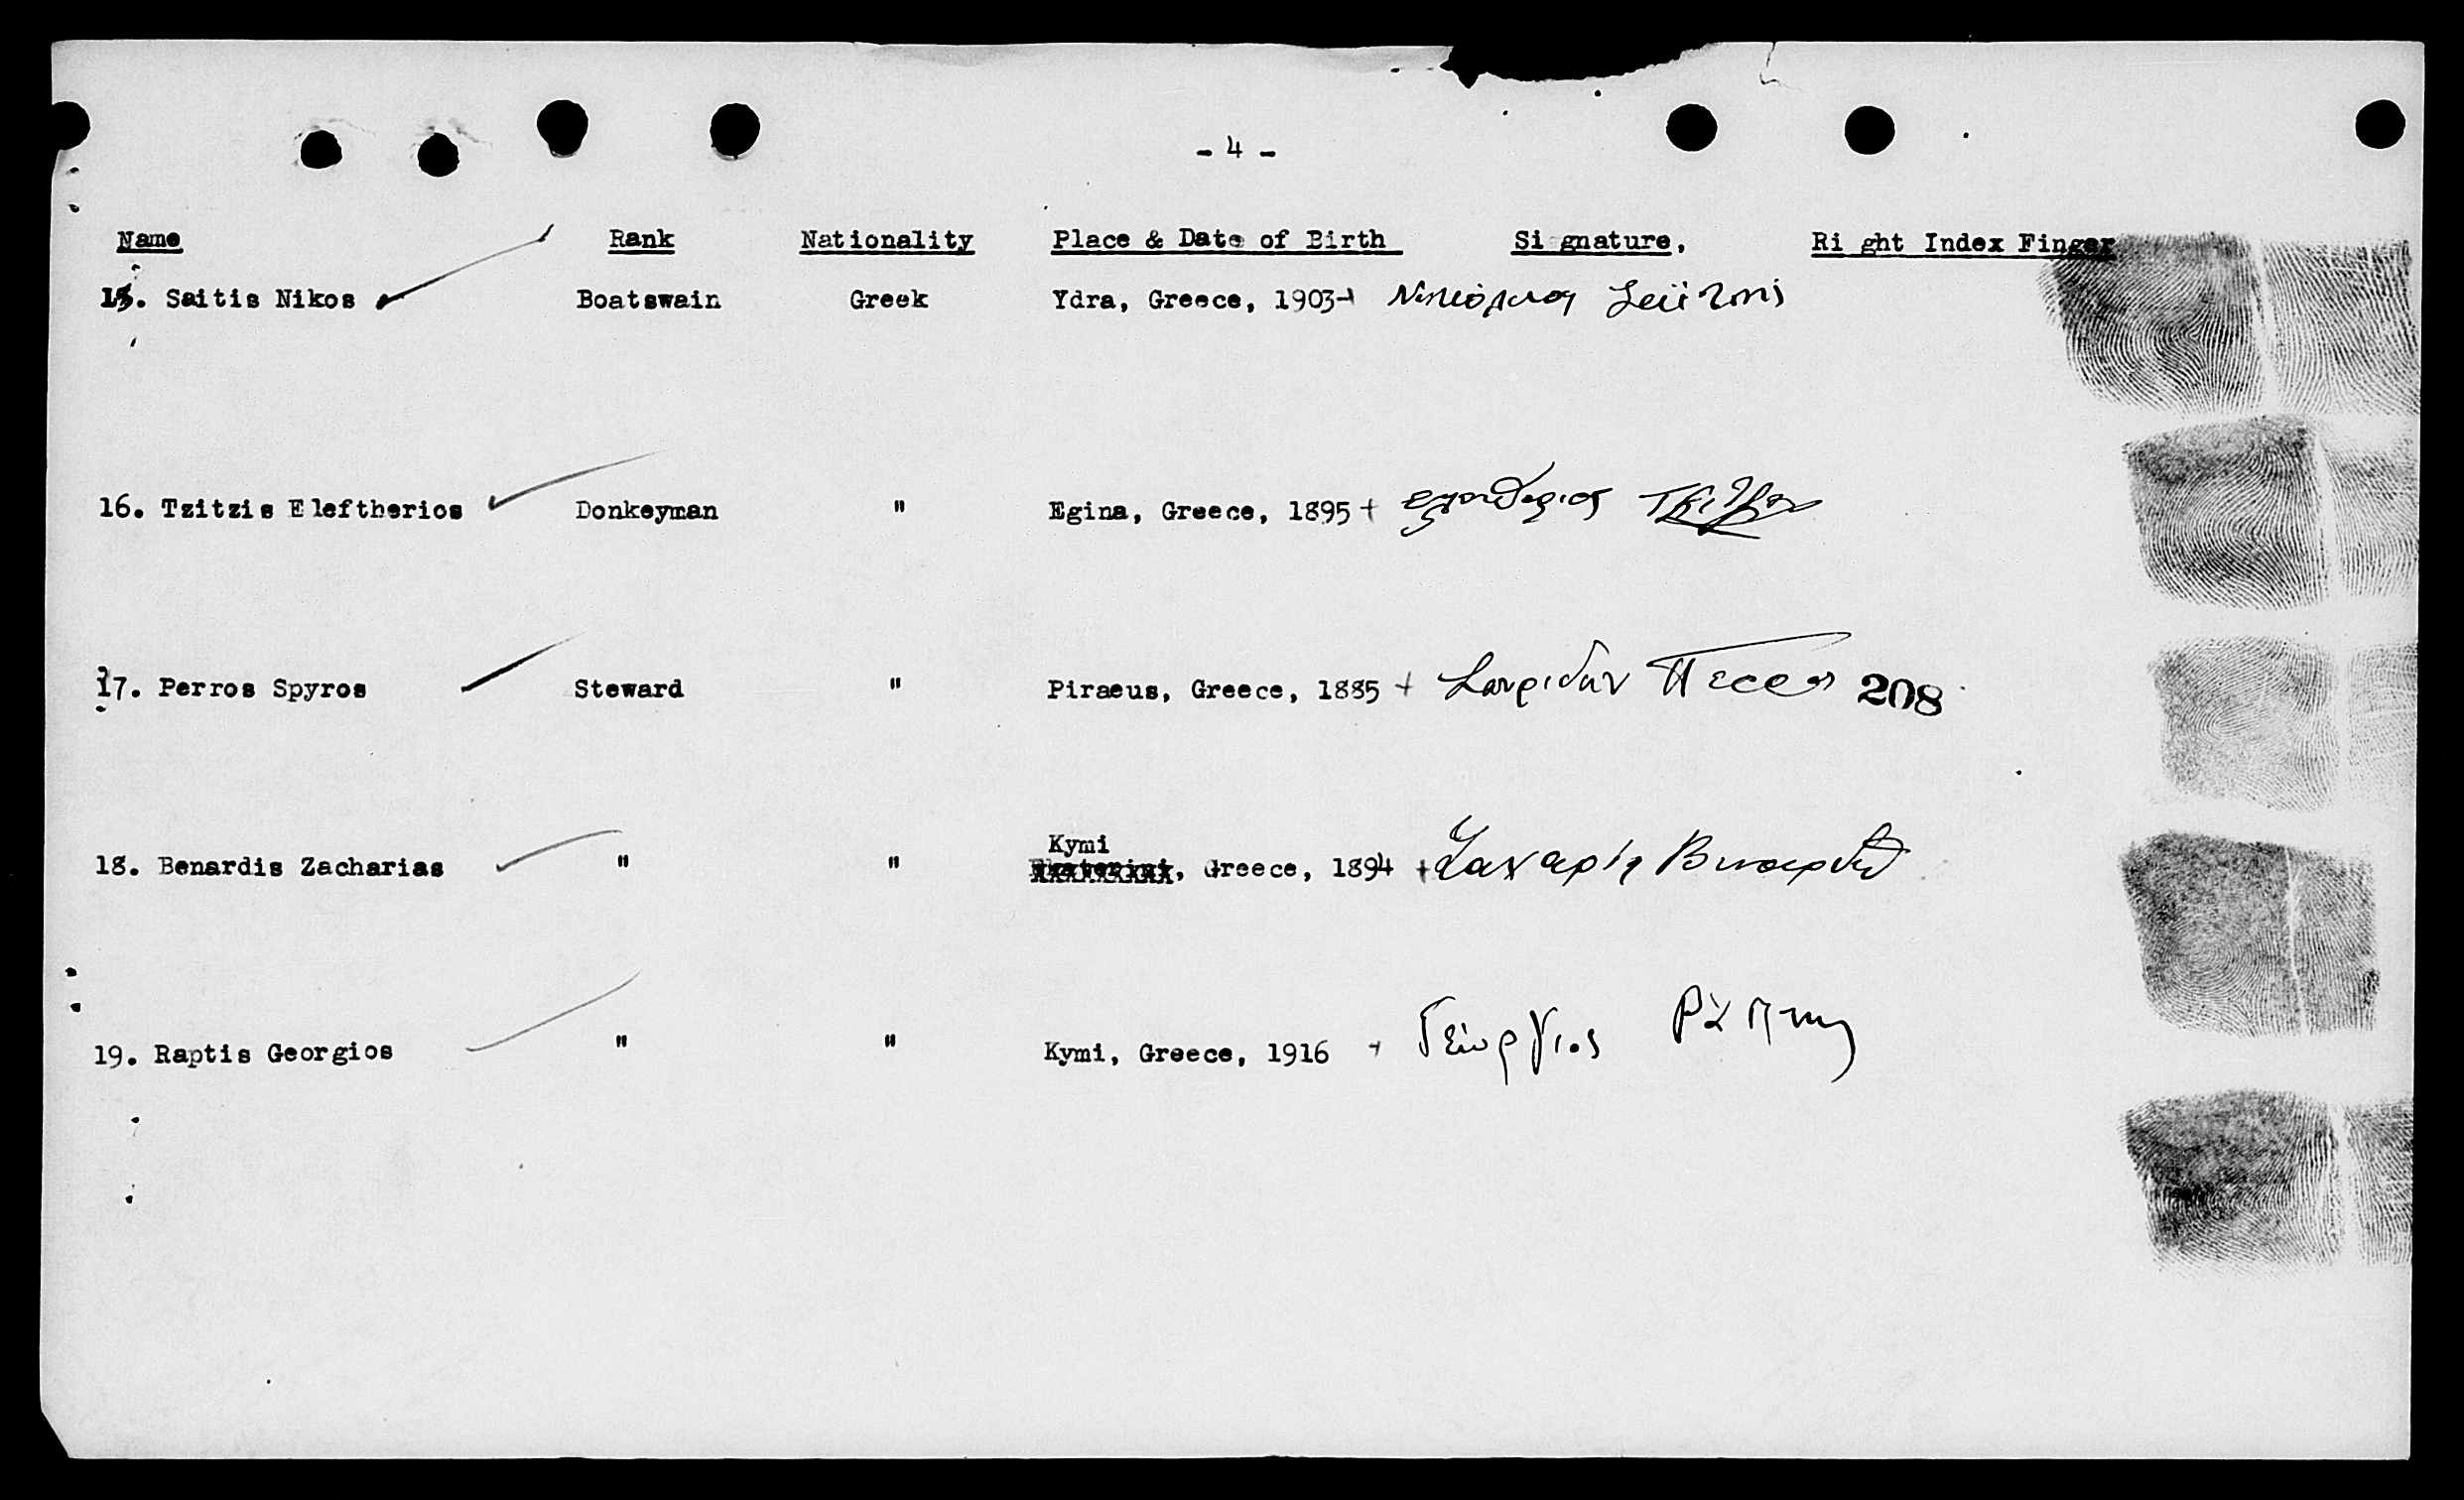 - 4 -
Name Rank Nationality Place & Date of Birth Signature, Right Index Finger
15. Saitis Nikos Boatswain Greek Ydra, Greece, 1903
16. Tzitzis Eleftherios Donkeyman " Egina, Greece, 1895
17. Perros Spyros Steward " Piraeus, Greece, 1885 208
Kymi
18. Benardis Zacharias " " Greece, 1894
19. Raptis Georgios " " Kymi, Greece, 1916 Γεώργιος Ράπτης